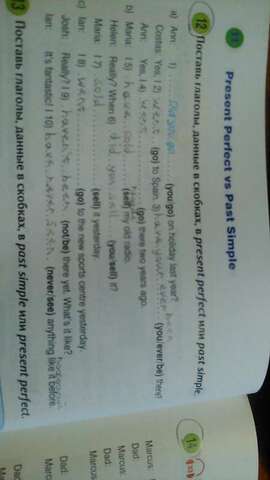 Present Perfect vs Past Simple
12 Поставь глаголы, данные в скобках, в present perfect или past simple.
a) Ann: 1) Did you go (you/go) on holiday last year?
Costas: Yes, I 2) went (go) to Spain. 3) have you ever been (you/ever/be) there?
Ann: Yes, I 4) went (go) there two years ago.
b) Maria: I 5) have sold (sell) my old radio.
Helen: Really? When 6) did you sell (you/sell) it?
Maria: I 7) sold (sell) it yesterday.
c) Ian: I 8) went (go) to the new sports centre yesterday.
Josh: Really? I 9) haven't been (not/be) there yet. What's it like?
Ian: It's fantastic! I 10) have never seen (never/see) anything like it before.
13 Поставь глаголы, данные в скобках, в past simple или present perfect.
14
Marcus:
Dad:
Marcus
Dad:
Marc
Dad: